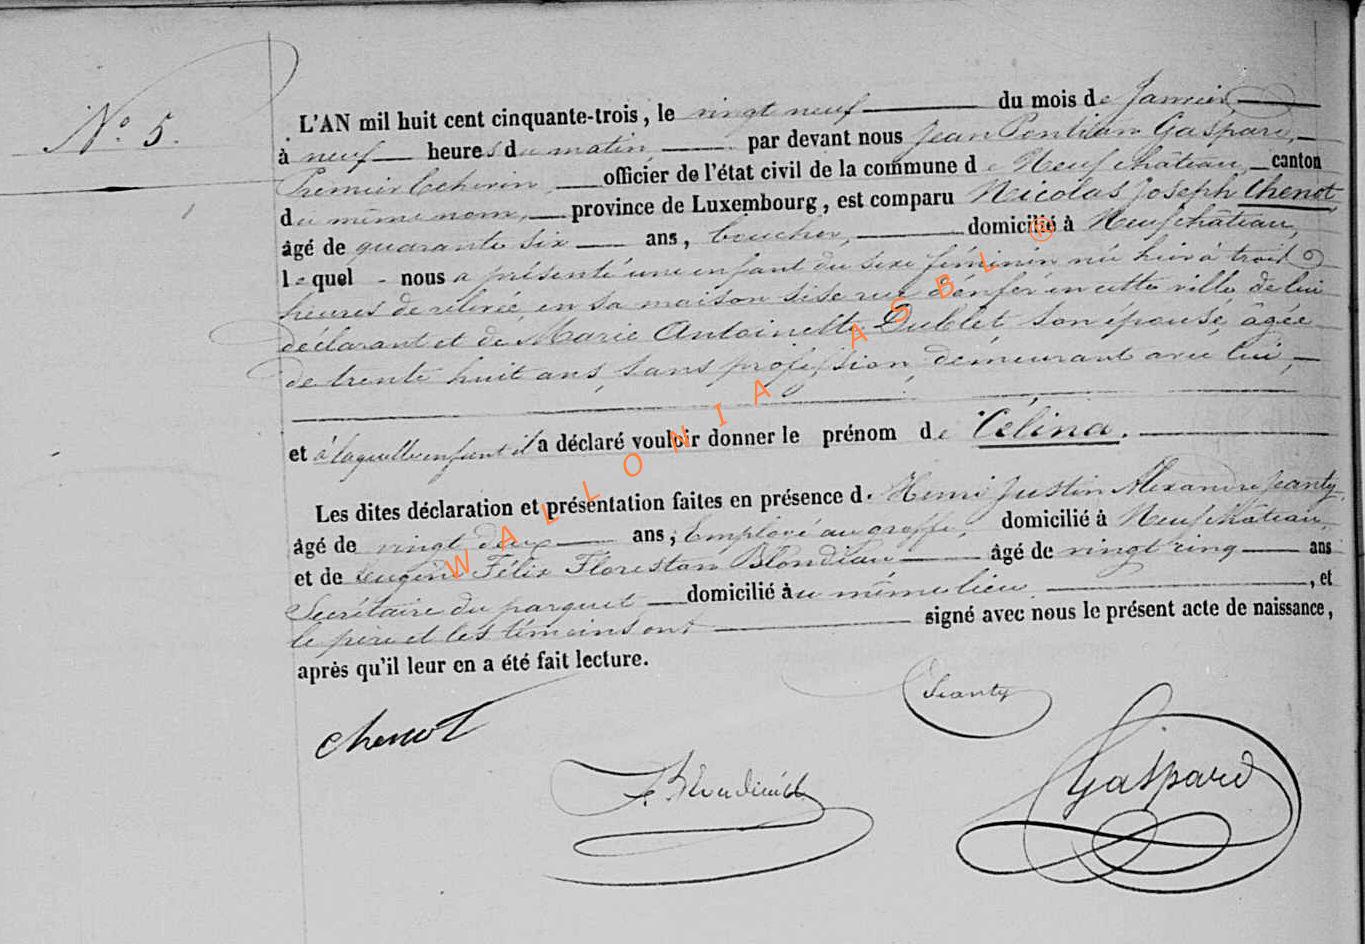 N° 5.
L'AN mil huit cent cinquante-trois, le vingt neuf du mois de Janvier
à neuf heures du matin, par devant nous Jean Pontian Gaspard,
Premier Echevin, officier de l'état civil de la commune de Neufchâteau, canton
du même nom, province de Luxembourg, est comparu Nicolas Joseph Chenot,
âgé de quarante six ans, boucher, domicilié à Neufchâteau,
lequel nous a présenté une enfant du sexe féminin née hier à trois
heures de relevée, en sa maison sise rue d'enfer en cette ville de lui
déclarant et de Marie Antoinette Dublet son épouse, agée
de trente huit ans, sans profession, demeurant avec lui,
et à laquelle enfant il a déclaré vouloir donner le prénom de Célina.
Les dites déclaration et présentation faites en présence de Henri Justin Alexandre Jeanty,
âgé de vingt deux ans, Employé au greffe, domicilié à Neufchâteau,
et de Eugène Félix Florestan Blondiau âgé de vingt cinq ans
Secrétaire du parquet domicilié au même lieu, et
le père et les témoins ont signé avec nous le présent acte de naissance,
après qu'il leur en a été fait lecture.
Jeanty
Chenot
F. Blondiau
Gaspard
WALLONIA ASBL ®